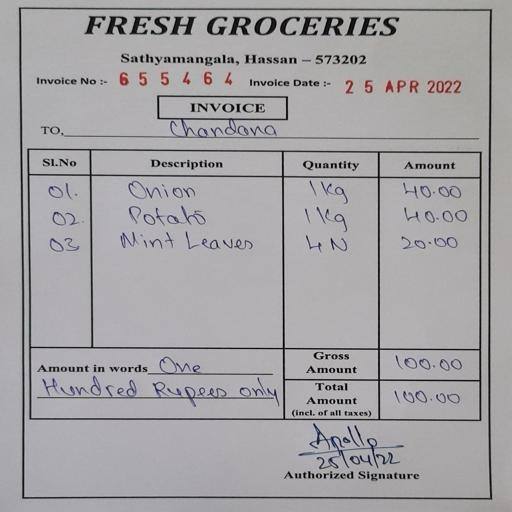 FRESH GROCERIES
Sathyamangala, Hassan – 573202
Invoice No :- 655464 Invoice Date :- 25 APR 2022
INVOICE
TO, Chandana
Sl.No Description Quantity Amount
01. Onion 1kg 40.00
02. Potato 1kg 40.00
03 Mint Leaves 4N 20.00
Amount in words One
Hundred Rupees only
Gross
Amount 100.00
Total
Amount
(incl. of all taxes) 100.00
Apollo
25/04/22
Authorized Signature